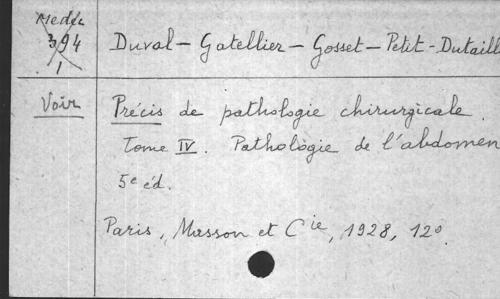 Medec
394
1
Duval - Gatellier - Gosset - Petit-Dutaill
Voir
Précis de pathologie chirurgicale.
Tome IV. Pathologie de l'abdomen
5e éd.
Paris, Masson et Cie, 1928, 12º